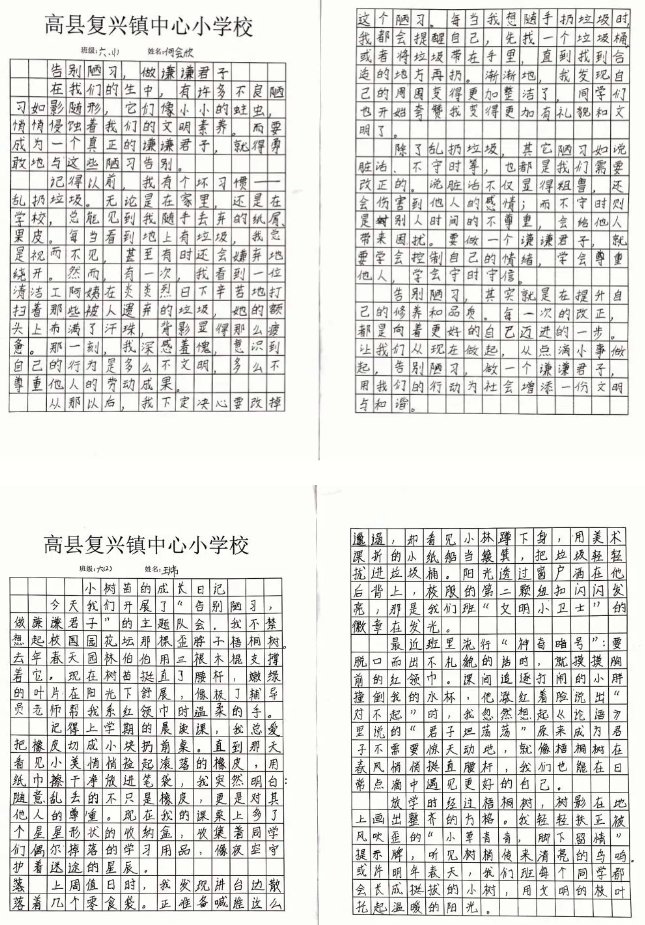 高县复兴镇中心小学校
班级:六.(1) 姓名:
告别陋习，做谦谦君子
在我们的生中，有许多不良陋
习如影随形，它们像小小的蛀虫，
悄悄侵蚀着我们的文明素养。而要
成为一个真正的谦谦君子，就得尊
敢地与这些陋习告别。
记得以前，我有个坏习惯——
乱扔垃圾。无论是在家里，还是在
学校，总能见到我随手丢弃的纸屑、
果皮。每当看到地上有垃圾，我总
是视而不见，甚至有时还会嫌弃地
绕开。然而，有一次，我看到一位
清洁工阿姨在炎炎烈日下辛苦地打
扫着那些被人遗弃的垃圾，她的额
头上布满了汗珠，背影显得那么疲
惫。那一刻，我深感羞愧，意识到
自己的行为是多么不文明，多么不
尊重他人的劳动成果。
从那以后，我下定决心要改掉
这个陋习。每当我想随手扔垃圾时，
我都会提醒自己，先找一个垃圾桶
或者将垃圾带在手里，直到我到合
适的地方再扔。渐渐地，我发现自
己的周围变得更加整洁了，同学们
也开始夸赞我变得更加有礼貌和文
明了。
除了乱扔垃圾，其它陋习如说
脏话、不守时等，也都是我们需要
改正的。说脏话不仅显得粗鲁，还
会伤害到他人的感情；而不守时则
是对别人时间的不尊重，会给他人
带来困扰。要做一个谦谦君子，就
要学会控制自己的情绪，学会尊重
他人，学会守时守信。
告别陋习，其实就是在提升自
己的修养和品质。每一次的改正，
都是向着更好的自己迈进的一步。
让我们从现在做起，从点滴小事做
起，告别陋习，做一个谦谦君子，
用我们的行动为社会增添一份文明
与和谐。
高县复兴镇中心小学校
班级:六(2) 姓名:
小树苗的成长日记
今天我们开展了“告别陋习，
做谦谦君子”的主题队会，我不禁
想起校园园花坛那棵歪脖子梧桐树。
去年春天园林伯伯用三根木棍支撑
着它，现在树苗挺直了腰杆，嫩绿
的叶片在阳光下舒展，像极了辅导
员老师帮我系红领巾时温柔的手。
记得上学期的晨读课，我总爱
把橡皮切成小块扔前桌。直到那天
看见小美悄悄捡起滚落的橡皮，用
纸巾擦干净放进笔袋，我突然明白：
随意乱丢的不只是橡皮，更是对其
他人的尊重。现在我的课桌上多了
个星星形状的收纳盒，收集着同学
们偶尔掉落的学习用品，像夜空守
护着迷途的星辰。
落 上周值日时，我发现讲台边散
落着几个零食袋。正准备喊座这么
邋遢，却看见小林蹲下身，用美术
课折的小纸船当簸箕，把垃圾轻轻
拢进垃圾桶。阳光透过窗户洒在他
后背上，校服的第二颗纽扣闪闪发
亮，那是我们班“文明小卫士”的
徽章在发光。
最近班里流行“神奇暗号”：要
脱口而出不礼貌的话时，就摸摸胸
前的红领巾。课间追逐打闹的小胖
撞倒我的水杯，他涨红着脸说出“
对不起”时，我忽然想起《论语》
里说的“君子坦荡荡”原来成为君
子不需要惊天动地，就像梧桐树在
春风悄悄挺直腰杆，我们也能在日
常点滴中遇见更好的自己。
放学时经过梧桐树，树影在地
上画出整齐的方格。我轻轻扶正被
风吹歪的“小草青青，脚下留情”
提示牌，听见树梢传来清亮的鸟鸣。
或许明年春天，我们班每个同学都
会长成挺拔的小树，用文明的枝叶
托起温暖的阳光。